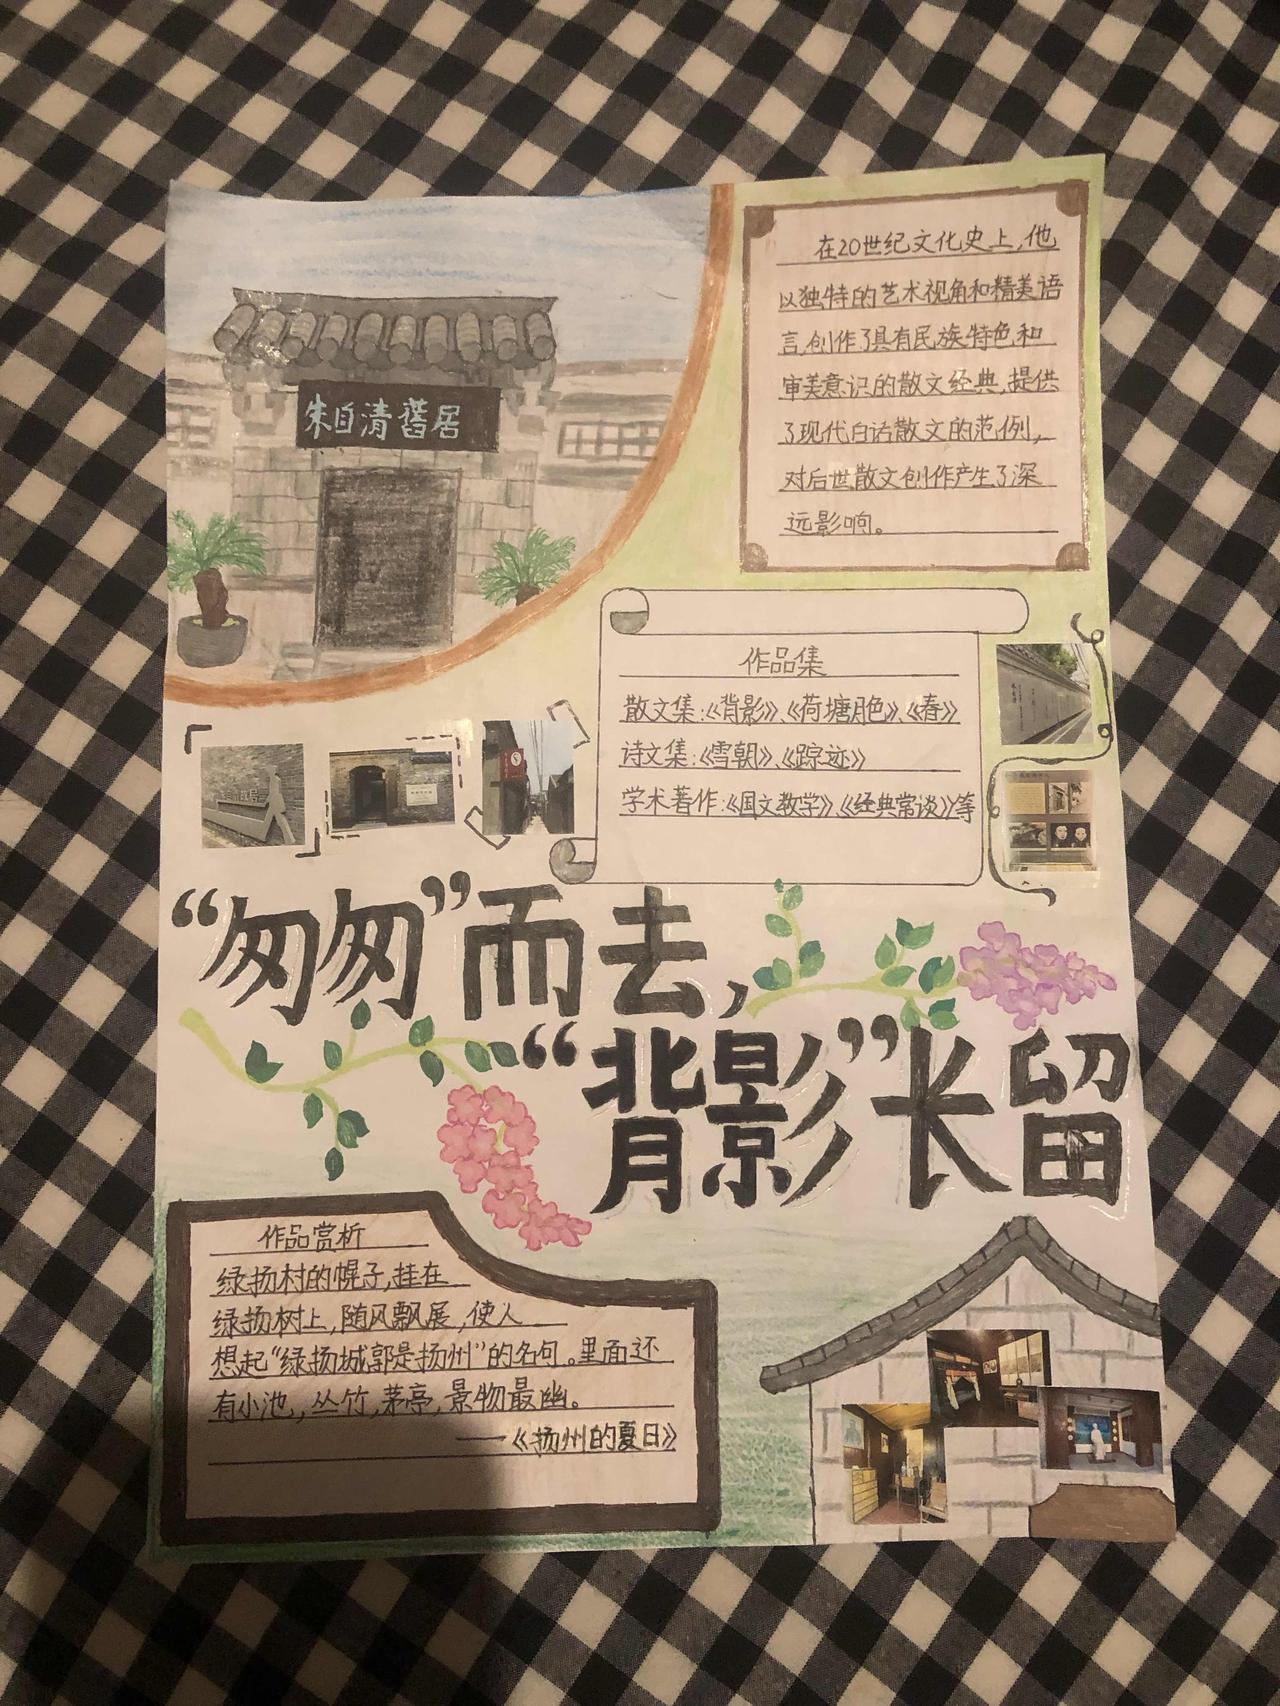 朱自清舊居
在20世纪文化史上,他
以独特的艺术视角和精美语
言,创作了具有民族特色和
审美意识的散文经典,提供
了现代白话散文的范例,
对后世散文创作产生了深
远影响。
作品集
散文集:《背影》、《荷塘月色》、《春》
诗文集:《雪朝》、《踪迹》
学术著作:《国文教学》、《经典常谈》等
“匆匆”而去,
“背影”长留
作品赏析
绿扬村的幌子,挂在
绿扬树上,随风飘展,使人
想起“绿扬城郭是扬州”的名句。里面还
有小池,,丛竹,茅亭,景物最幽。
——《扬州的夏日》